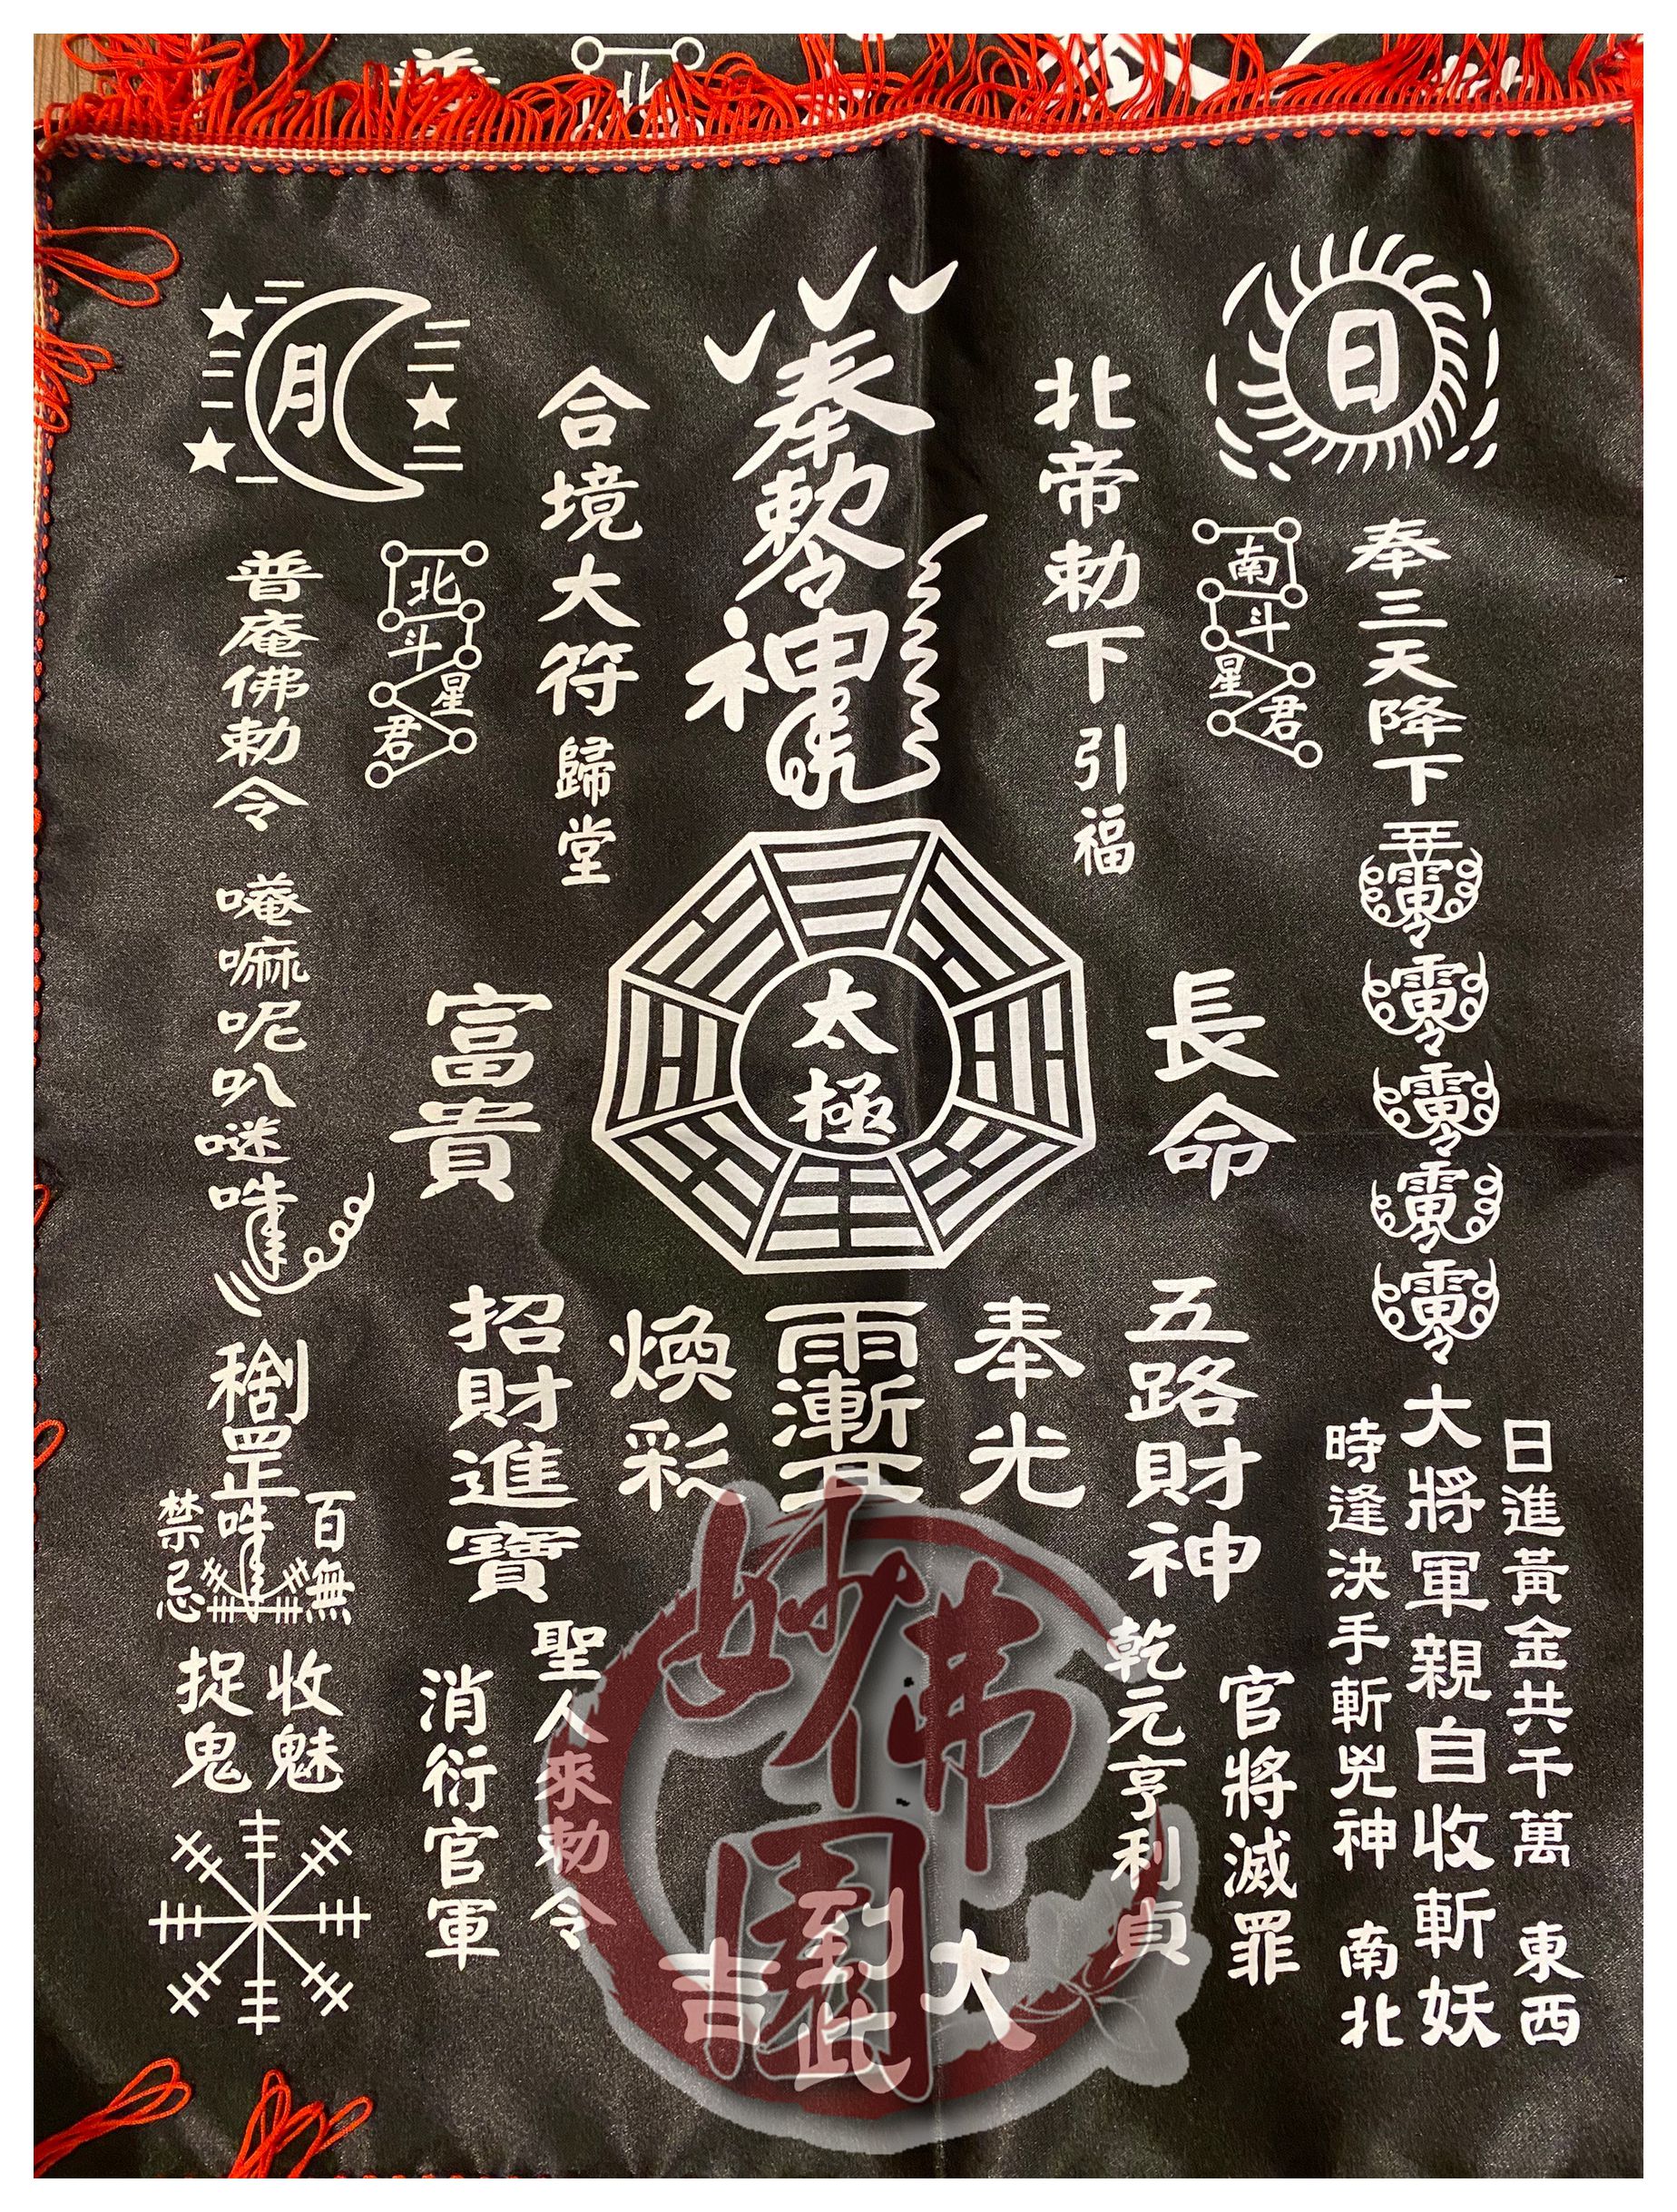 日
奉三天降下
大將軍親自收斬妖
日進黃金共千萬
東西
時逢決手斬兇神
南北
南斗星君
北帝勅下引福
長命
五路財神
官將滅罪
乾元亨利貞
奉勅令
神
太極
奉光
煥彩
大
到此
吉
合境大符歸堂
富貴
招財進寶
聖人來勅令
消衍官軍
月
北斗星君
普庵佛勅令
唵嘛呢叭
罡
百無
禁忌
收魅
捉鬼
妙佛園